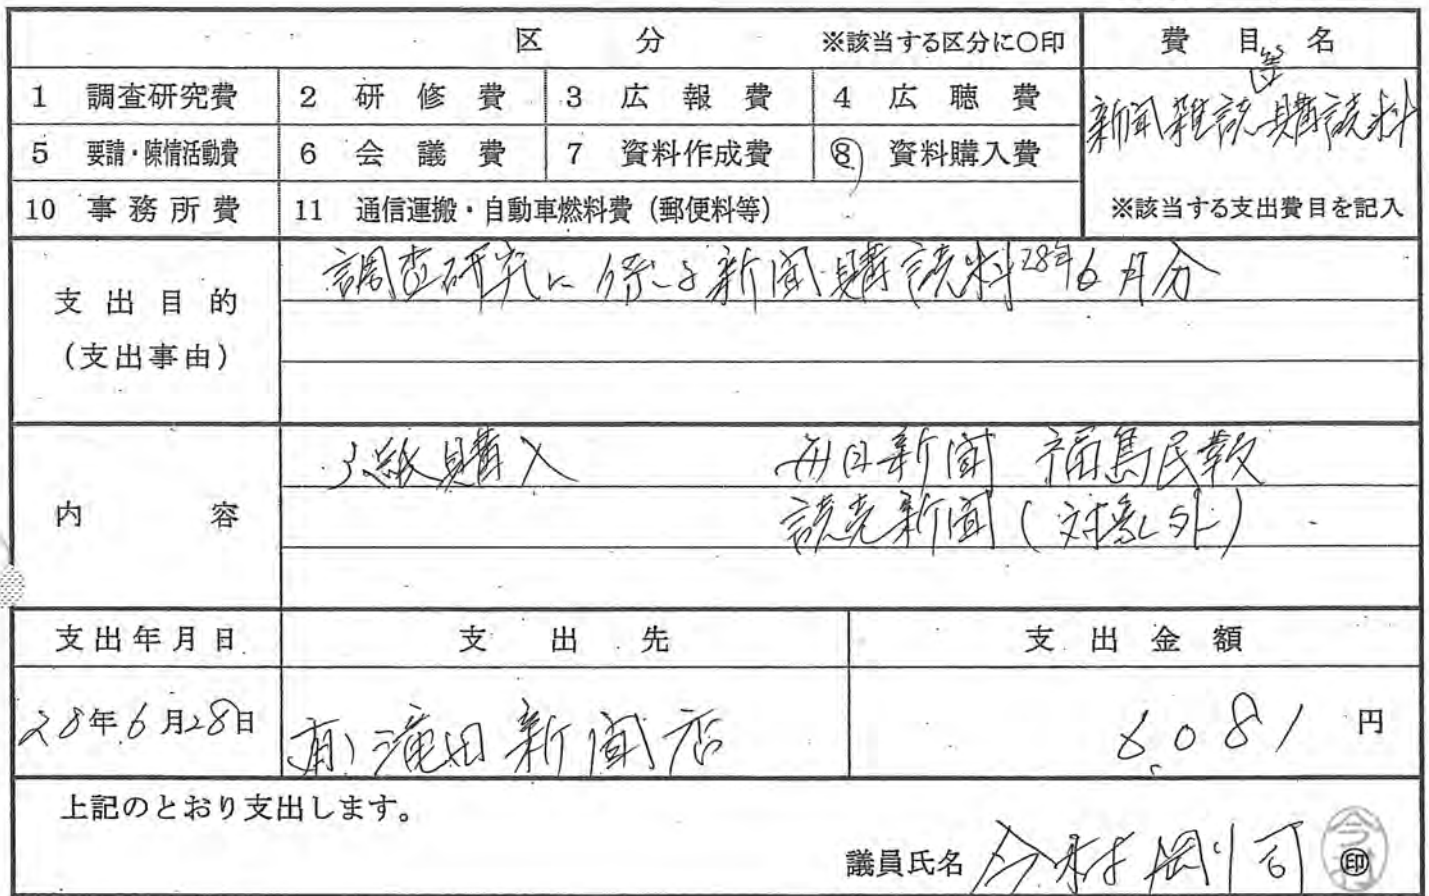 区 分 ※該当する区分に○印 費 目 名
1 調査研究費 2 研 修 費 3 広 報 費 4 広 聴 費
等
新聞雑誌購読料
5 要請・陳情活動費 6 会 議 費 7 資料作成費 8 資料購入費
10 事 務 所 費 11 通信運搬・自動車燃料費（郵便料等） ※該当する支出費目を記入
支 出 目 的
(支出事由)
調査研究に係る新聞購読料28年6月分
内 容
紙購入 毎日新聞 福島民報
読売新聞(対象外)
支出年月日 支 出 先 支 出 金 額
28年6月28日 有)滝田新聞店 円
上記のとおり支出します。
議員氏名 今村剛司 印